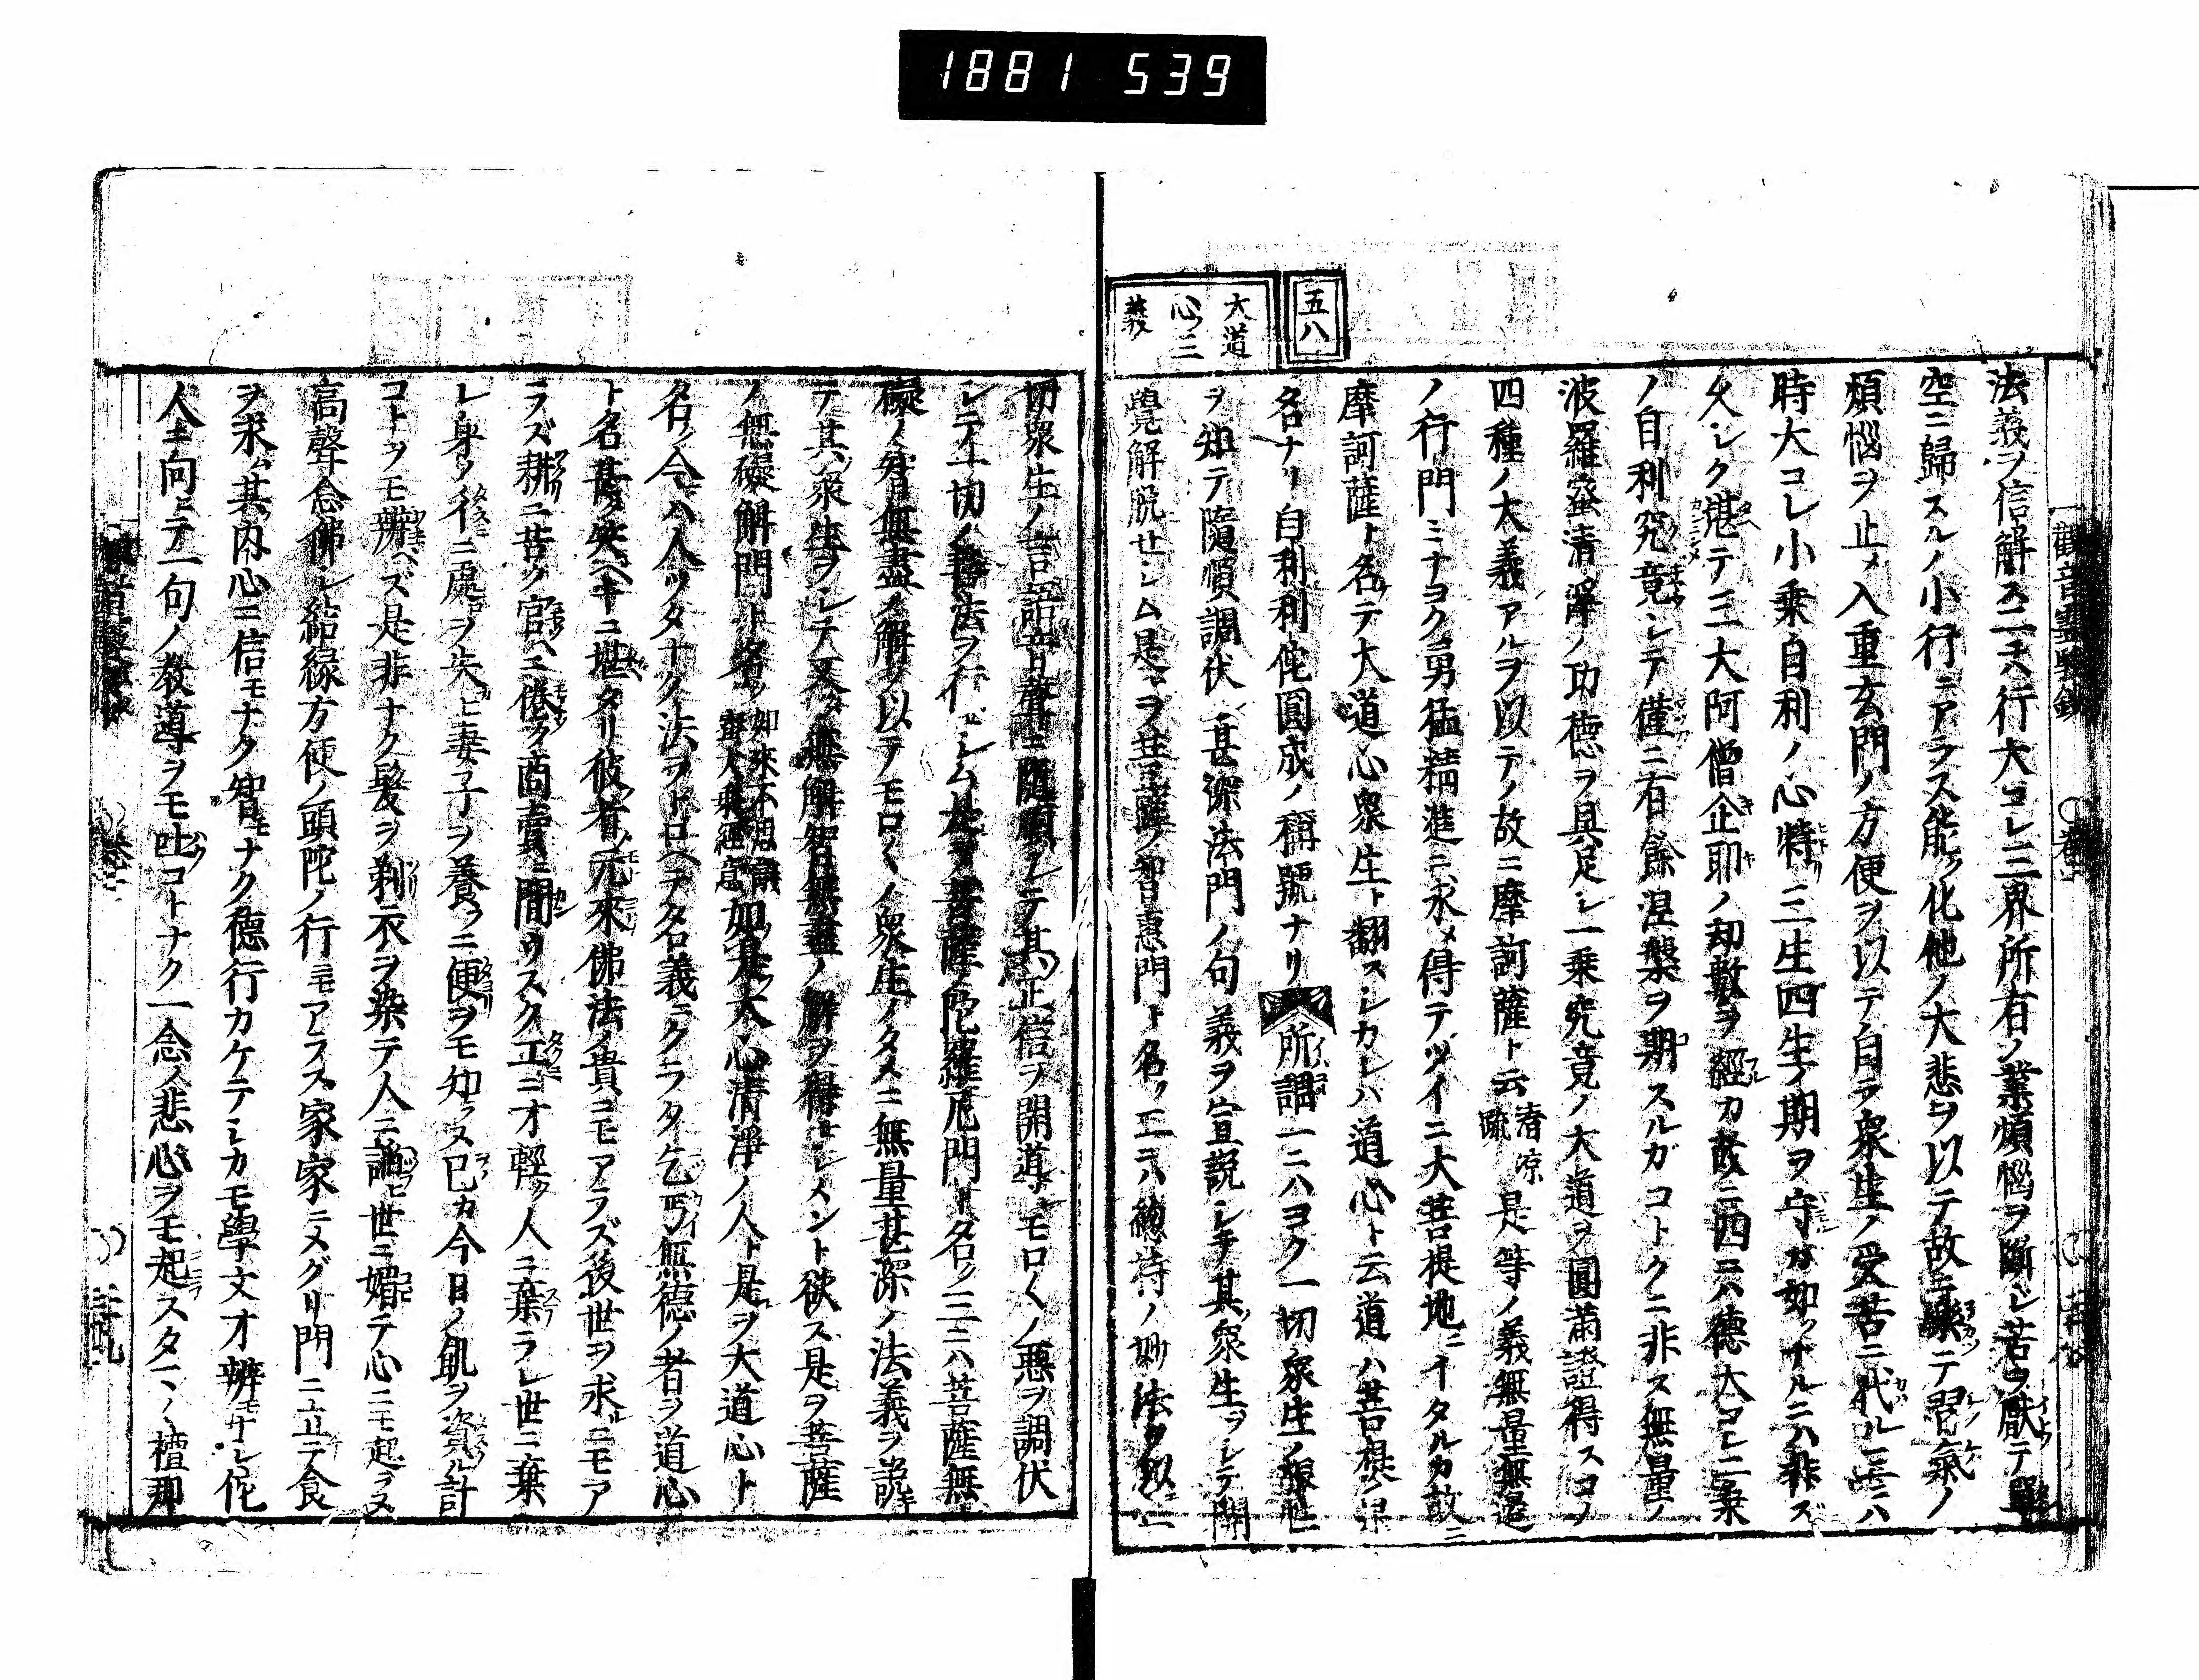 1881 539
觀音靈驗鈔
法義ヲ信解ス二ニハ行大コレ三界所有ノ業煩惱ヲ斷シ苦ヲ厭テ
空ニ歸スルノ小行ニアラス能ク化他ノ大悲ヲ以テ故ニ習氣ノ
煩惱ヲ止メ入重玄門ノ方便ヲ以テ自ラ衆生ノ受苦ニ代ル三ニハ
時大コレ小乘自利ノ心特リ三生四生ノ期ヲ守カ如ナルニハ非ズ
久シク湛テ三大阿僧企耶ノ却數ヲ經カ故ニ四ニハ德大コレ二乘
ノ自利究竟シテ僅ニ有餘涅槃ヲ期スルガコトクニ非ス無量ノ
波羅蜜清淨ノ功徳ヲ具足シ一乘究竟ノ大道ヲ圓滿證得スコノ
四種ノ大義アルヲ以テノ故ニ摩訶薩ト云 是等ノ義無量無邊
ノ行門ミナヨク勇猛精進ニ求メ得テツイニ大菩提地ニイタルカ故ニ
摩訶薩ト名テ大道心衆生ト翻スシカレハ道心ト云道ハ菩提ノ
名ナリ自利利佗圓成ノ稱號ナリ 所謂一ニハヨク一切衆生ノ
ヲ知テ隨順調伏シ甚深法門ノ句義ヲ宣說シテ其衆生ヲシテ開
覺解脫セシム是ヲ菩薩ノ智惠門ト名ク二ニハ總持ノ妙法ヲ以テ一
五八
大道
心ノ三
義
切衆生ノ言語音聲ニ隨順シテ其正信ヲ開導シモロくノ惡ヲ調伏
シテ一切ノ善法ヲ行セシム是ヲ菩薩ノ陀羅尼門ト名ク三ニハ菩薩無
礙ノ智無盡ノ解ヲ以テモロくノ衆生ノタメニ無量甚深ノ法義ヲ說
テ其衆生ヲシテ又タ無解智無盡ノ解ヲ得セシメント欲ス是ヲ菩薩
ノ無礙解門ト名ク 如來不思議 大乘經意 如是大心清淨ノ人ト是ヲ大道心ト
名ク今ハ人ツタナク法ヲトロヘテ名義ニクラク乞丐無德ノ者ヲ道心
ト名甚タ笑ヘキニ堪タリ彼者元來佛法ノ貴コモアラズ後世ヲ求ルニモア
ラズ耕ニ苦ク官ヘニ倦ク商賣ニ間ウスク工ニ才輕ク人ニ棄ラレ世ニ棄
レ身ヲ行ニ處ヲ失ヒ妻子ヲ養フニ便ヲモ知ラス已カ今日ノ飢ヲ資ル計
コトヲモ辨ヘズ是非ナク髮ヲ剃衣ヲ染テ人ニ諂ヒ世ニ媚テ心ニモ起ラヌ
高聲念佛シ結緣方便ノ頭陀ノ行ニモアラス家家ニメグリ門ニ立テ食
ヲ求ム其内心ニ信モナク智モナク德行カケテシカモ學文オ辨モナシ佗
人ニ向テ一句ノ教導ヲモ吐コトナク一念ノ悲心ヲモ起スタマく檀那